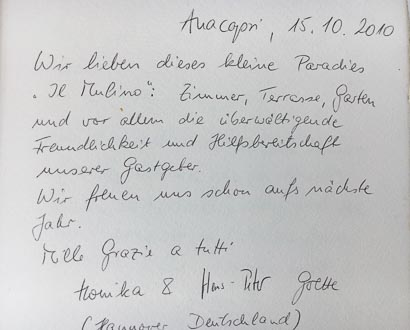 Anacapri, 15.10.2010
Wir lieben dieses kleine Paradies
"Il Mulino": Zimmer, Terrasse, Garten
und vor allem die überwältigende
Freundlichkeit und Hilfsbereitschaft
unserer Gastgeber.
Wir freuen uns schon aufs nächste
Jahr.
Mille Grazie a tutti
Monika & Hans-Peter Goette
(Hannover Deutschland)